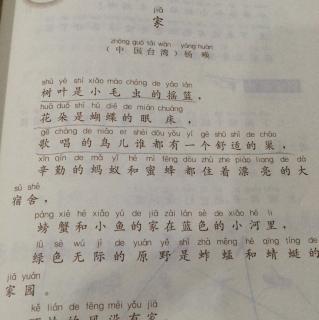 jiā
家
zhōng guó tái wān yáng huàn
（中国台湾）杨唤
shù yè shì xiǎo máo chóng de yáo lán
树叶是小毛虫的摇篮，
huā duǒ shì hú dié de mián chuáng
花朵是蝴蝶的眠床，
gē chàng de niǎo er shéi dōu yǒu yí gè shū shì de cháo
歌唱的鸟儿谁都有一个舒适的巢，
xīn qín de mǎ yǐ hé mì fēng dōu zhù zhe piào liang de dà
辛勤的蚂蚁和蜜蜂都住着漂亮的大
sù shè
宿舍，
páng xiè hé xiǎo yú de jiā zài lán sè de xiǎo hé lǐ
螃蟹和小鱼的家在蓝色的小河里，
lǜ sè wú jì de yuán yě shì zhà měng hé qīng tíng de
绿色无际的原野是蚱蜢和蜻蜓的
jiā yuán
家园。
kě lián de fēng méi yǒu jiā